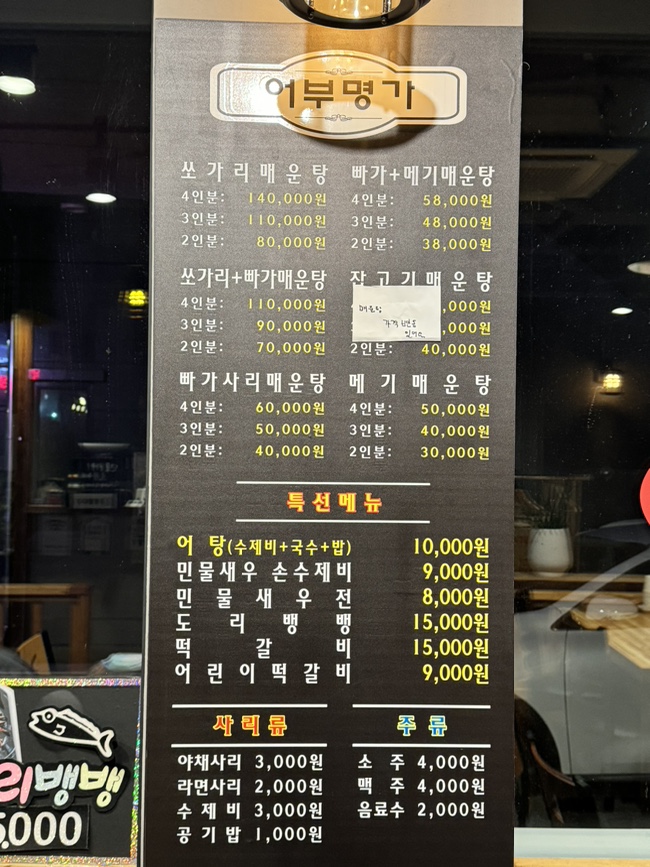 어부명가
쏘가리매운탕
4인분: 140,000원
3인분: 110,000원
2인분: 80,000원
빠가+메기매운탕
4인분: 58,000원
3인분: 48,000원
2인분: 38,000원
쏘가리+빠가매운탕
4인분: 110,000원
3인분: 90,000원
2인분: 70,000원
잡고기매운탕
,000원
,000원
2인분: 40,000원
매운탕
가격 변동
있어요
빠가사리매운탕
4인분: 60,000원
3인분: 50,000원
2인분: 40,000원
메기매운탕
4인분: 50,000원
3인분: 40,000원
2인분: 30,000원
특선메뉴
어탕(수제비+국수+밥) 10,000원
민물새우 손수제비 9,000원
민물새우전 8,000원
도리뱅뱅 15,000원
떡갈비 15,000원
어린이떡갈비 9,000원
사리류
야채사리 3,000원
라면사리 2,000원
수제비 3,000원
공기밥 1,000원
주류
소주 4,000원
맥주 4,000원
음료수 2,000원
리뱅뱅
5,000